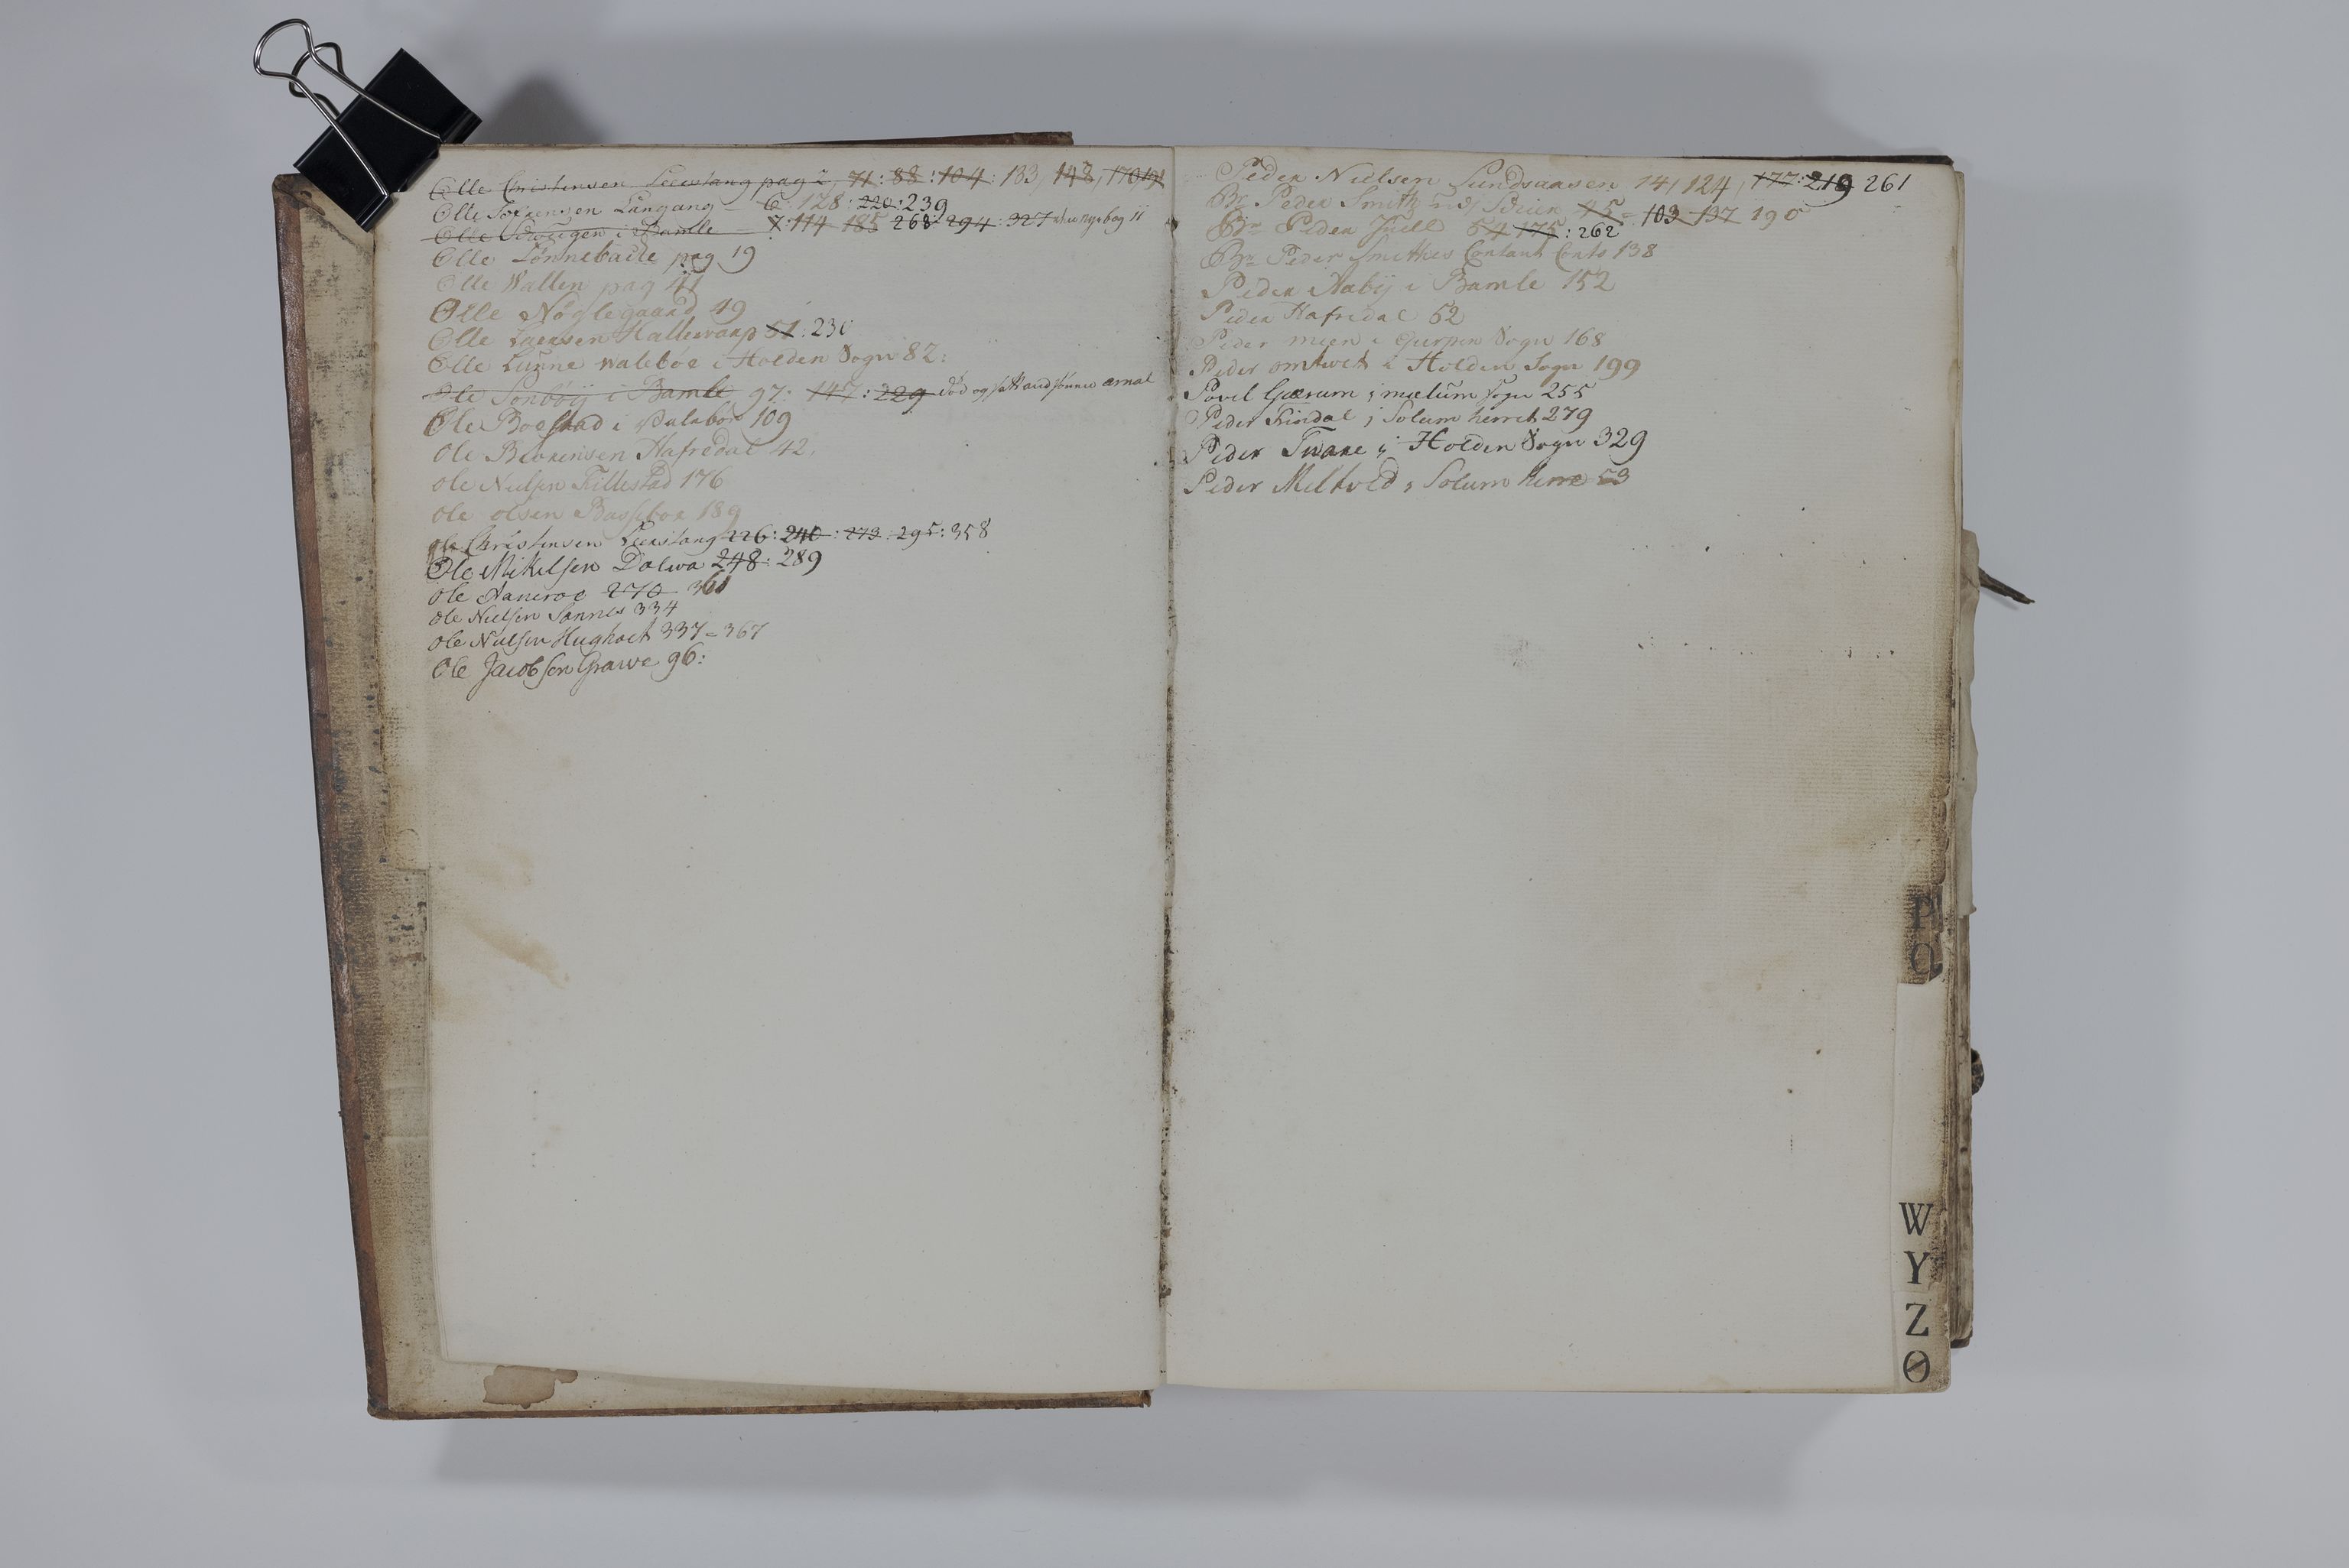 Olle Christensen Leerstang pag 2, 71: 88: 104: 133, 148, 170
Olle Langang - 6: 128: 220: 239
Olle i Bamle - 7: 114 185 268 294: 327 den nye bog 11
Olle Lønnebacke pag 19
Olle Wallen pag 41
Olle Nøglegaard 49
Olle Larsen Hallewarp 51: 230
Olle Lunne walebøe i Holden Sogn 82:
Ole Sonbøij i Bamle 97: 147: 229 død og
Ole Boestad i 109
Ole Hafredal 42.
Ole Nielsen Fillestad 176
Ole olsen Basseboe 189
ole Christensen Leerstang 226: 240: 273: 295: 358
Ole Mikelsen Dalwa 248: 289
ole Aaneroe 270 361
ole Nielsen Sannes 334
ole Nielsen Hugholt 337 = 367
Ole Jacobsen Grawe 96:
Peder Nielsen Sundsaasen 14, 124, 177: 219 261
Br Peder Smith 45 = 103 137 190
Br Peder Juell 54 175: 262
Br Peder Smithes Contant Conto 138
Peder Aabij i Bamle 152
Peder Hafredal 52
Peder mien i Gierpen Sogn 168
Peder omtwet i Holden Sogn 199
Povel Gierum i mælum Sogn 255
Peder Rindal i Solum herret 279
Peder Tware i Holden Sogn 329
Peder Meltved i Solum herre 53
P
Q
W
Y
Z
Ø